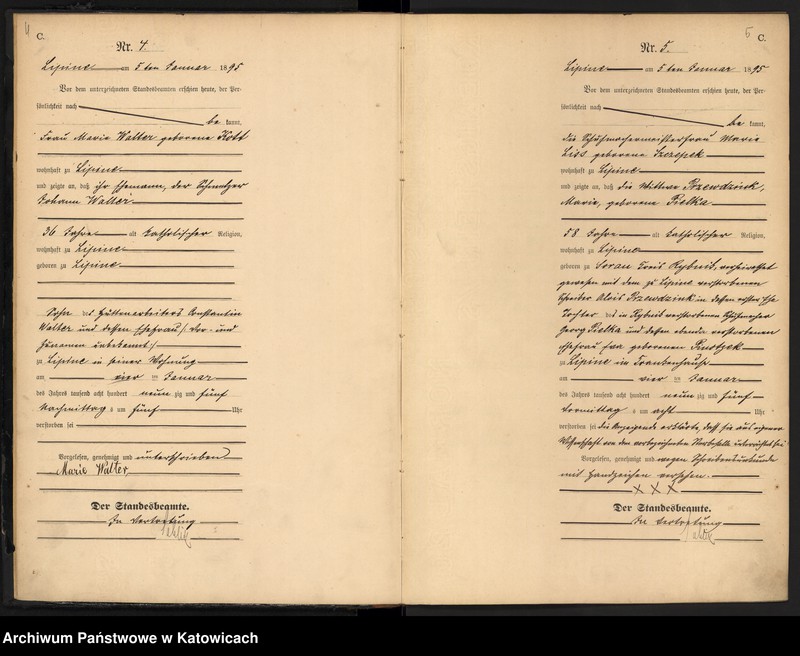 4
C.
Nr. 4.
Lipine am 5ten Januar 1895
Vor dem unterzeichneten Standesbeamten erschien heute, der Per-
sönlichkeit nach
be kannt,
Frau Marie Walter geborene Kott
wohnhaft zu Lipine
und zeigte an, daß ihr Ehemann, der Schmelzer
Johann Walter
36 Jahre alt katholischer Religion,
wohnhaft zu Lipine
geboren zu Lipine
Sohn des Hüttenarbeiters Constantin
Walter und dessen Ehefrau /: Vor- und
Zunamen unbekannt :/
zu Lipine in seiner Wohnung
am vier ten Januar
des Jahres tausend acht hundert neun zig und fünf
Nachmittags um fünf Uhr
verstorben sei
Vorgelesen, genehmigt und unterschrieben
Marie Walter
Der Standesbeamte.
In Vertretung
5
C.
Nr. 5.
Lipine am 5ten Januar 1895
Vor dem unterzeichneten Standesbeamten erschien heute, der Per-
sönlichkeit nach
be kannt,
die Schuhmachermeisterfrau Marie
Liss geborene Szczepek
wohnhaft zu Lipine
und zeigte an, daß die Wittwe Przewdzink,
Marie, geborene Pielka
58 Jahre alt katholischer Religion,
wohnhaft zu Lipine
geboren zu Sorau Kreis Rybnik, verheirathet
gewesen mit dem zu Lipine verstorbenen
Arbeiter Alois Przewdzink in dessen erster Ehe
Tochter des in Rybnik verstorbenen
Georg Pielka und dessen ebenda verstorbenen
Ehefrau geborenen
zu Lipine im Krankenhause
am vier ten Januar
des Jahres tausend acht hundert neun zig und fünf
Vormittag s um acht Uhr
verstorben sei die Anzeigende erklärte, daß sie aus eigener
Wissenschaft von dem vorbezeichneten Sterbefalle unterrichtet sei
Vorgelesen, genehmigt und wegen Schreibensunkunde
mit Handzeichen versehen.
X X X
Der Standesbeamte.
In Vertretung
Archiwum Państwowe w Katowicach